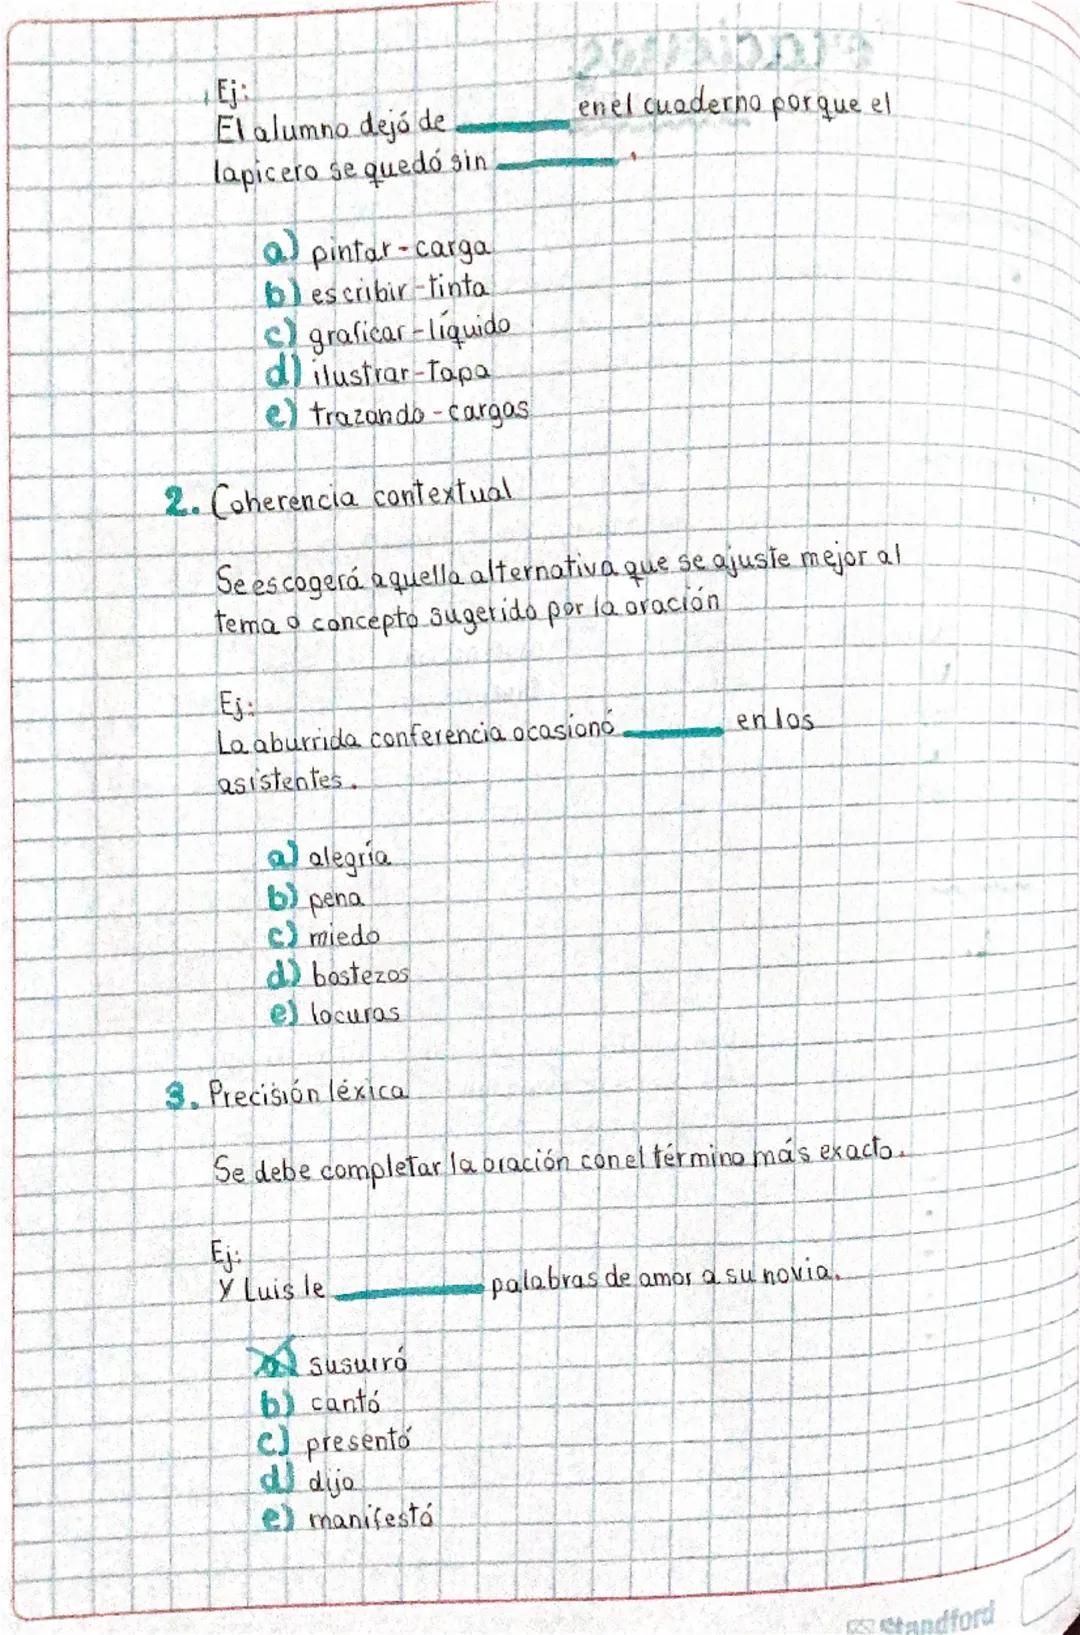 Ej:
El alumno dejó de ______ en el cuaderno porque el
lapicero se quedó sin ______.
a) pintar - carga
b) escribir - tinta
c) graficar - líquido
d) ilustrar - tapa
e) trazando - cargas
2. Coherencia contextual
Se escogerá aquella alternativa que se ajuste mejor al
tema o concepto sugerido por la oración
Ej:
La aburrida conferencia ocasionó ______ en los
asistentes.
a) alegría
b) pena
c) miedo
d) bostezos
e) locuras
3. Precisión léxica
Se debe completar la oración con el término más exacto.
Ej:
Y Luis le ______ palabras de amor a su novia.
a) susurró
b) cantó
c) presentó
d) dijo
e) manifestó
Standford